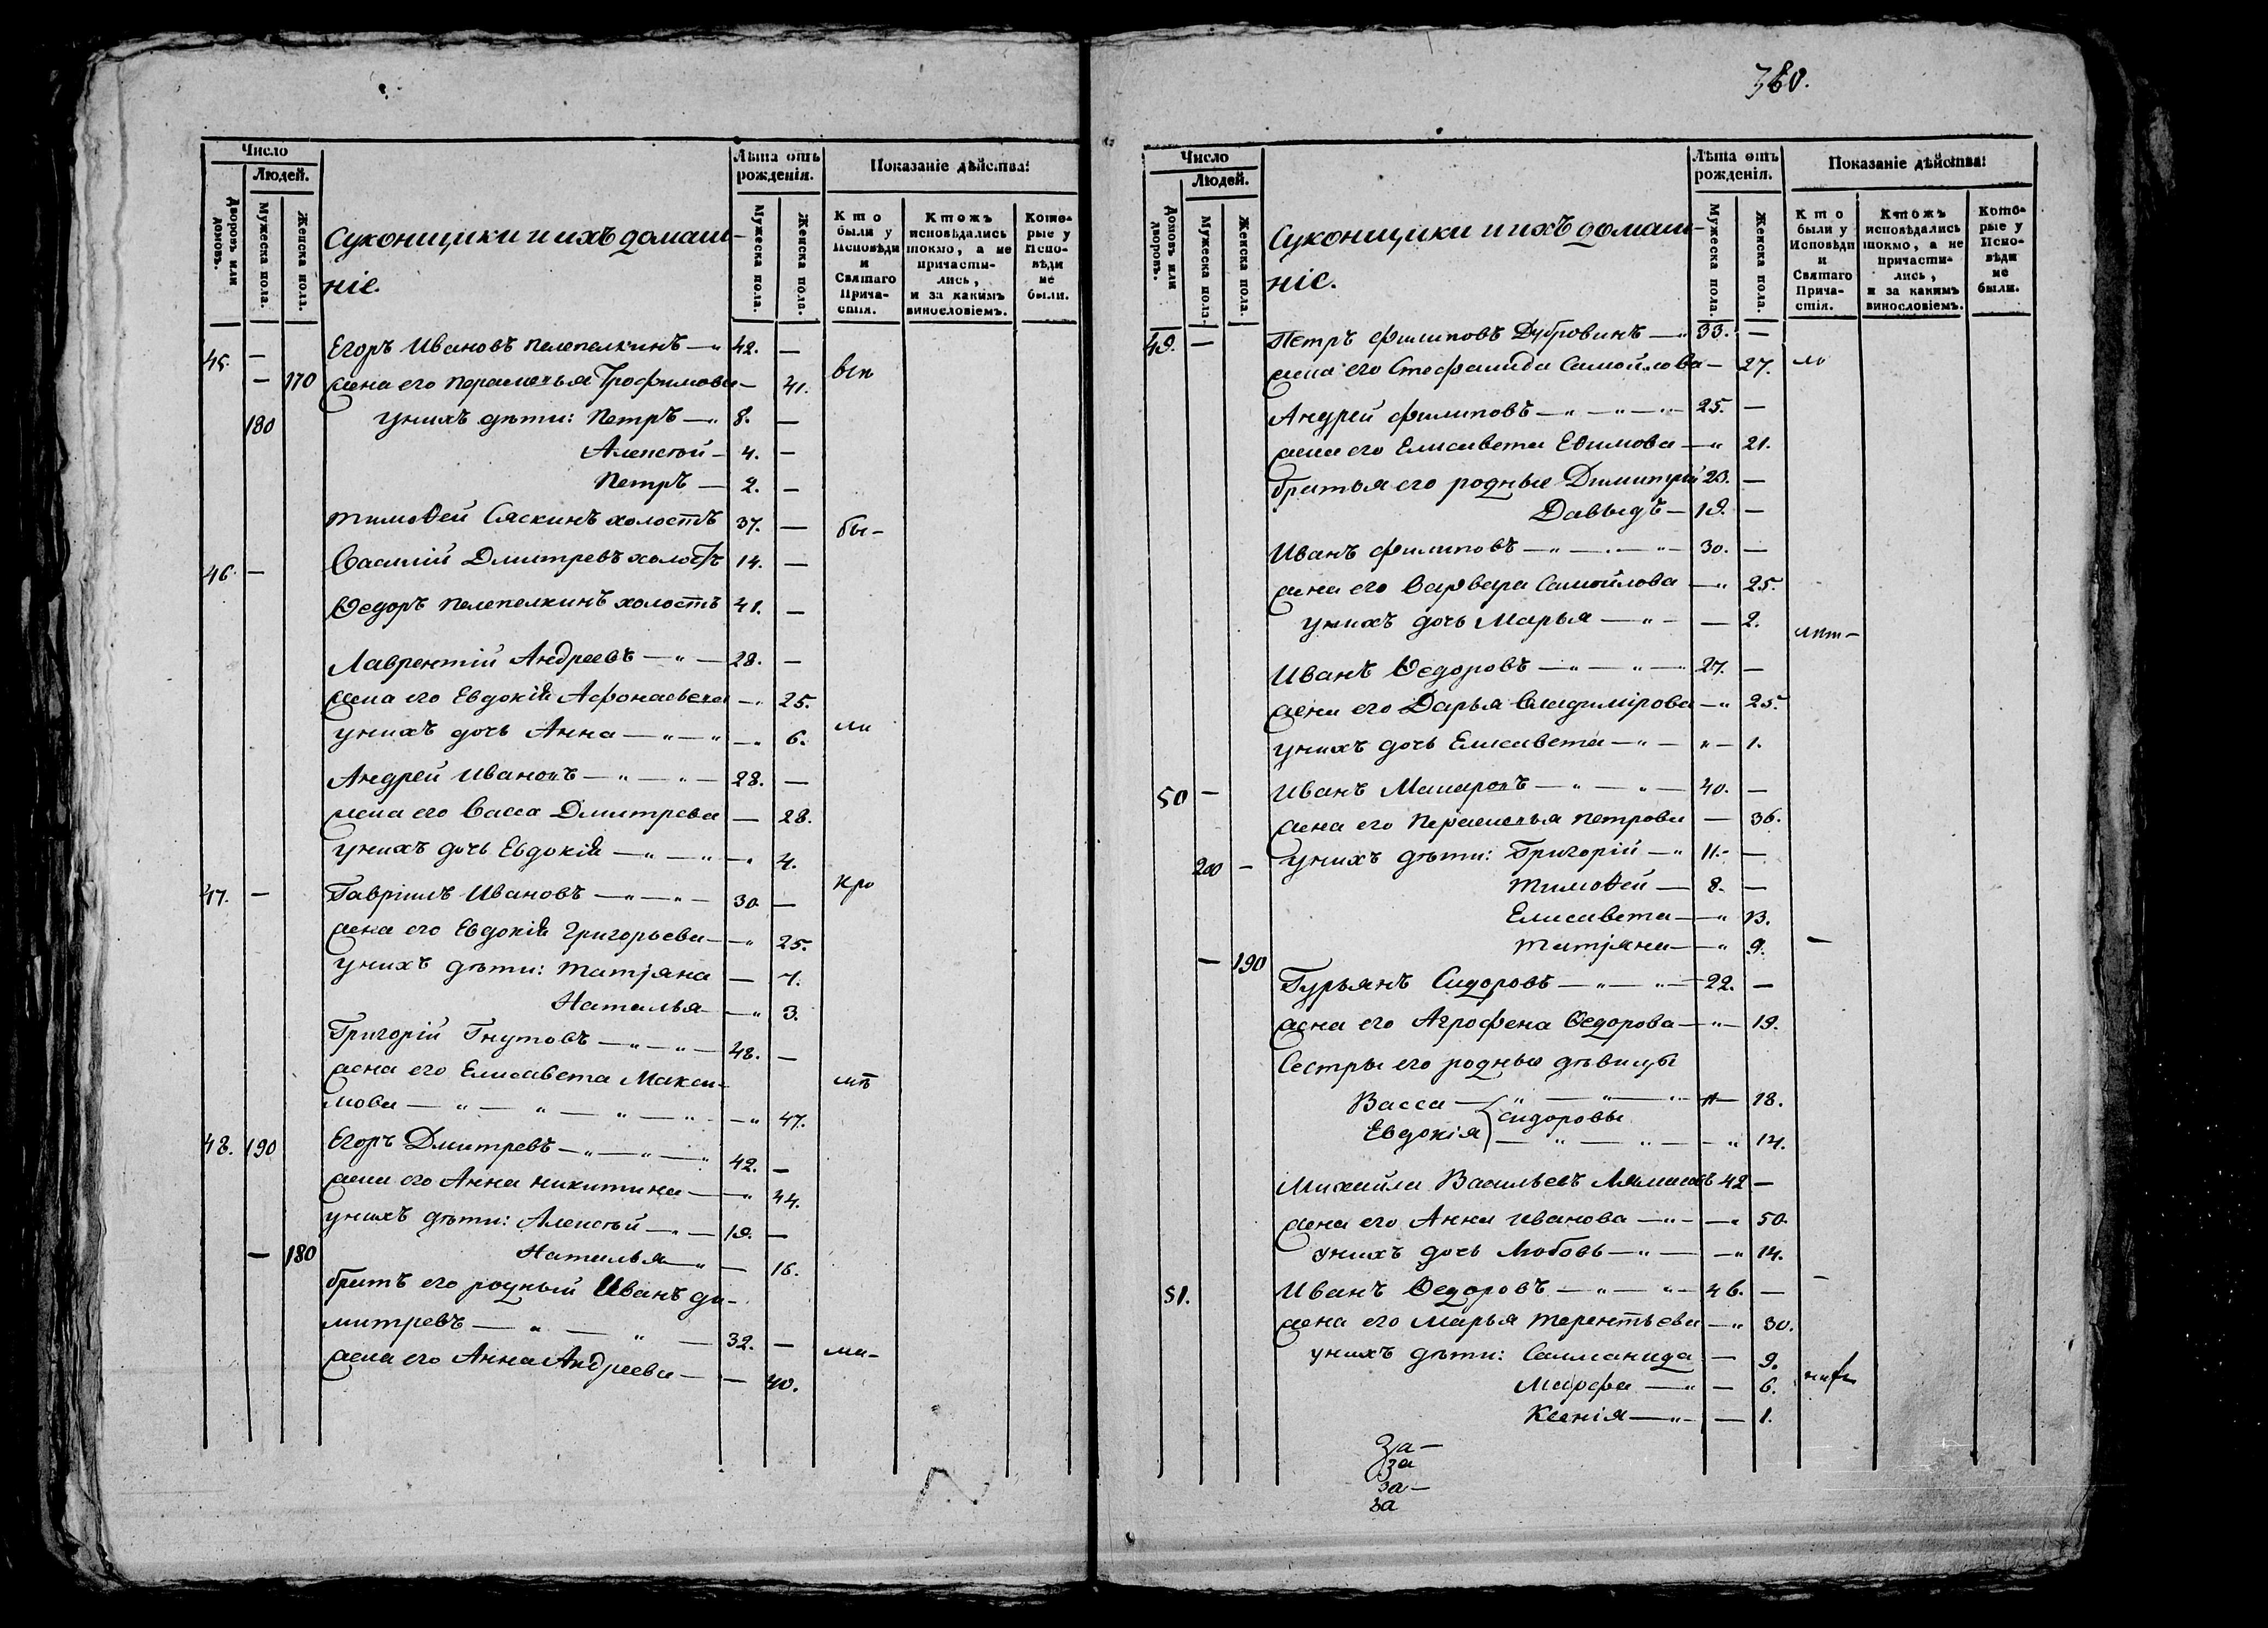 Число
Людей.
Дворовъ или домовъ.
Мужеска пола.
Женска пола.
Суконщики и ихъ домаш-
ніе.
Лѣта отъ
рожденія.
Мужеска пола.
Женска пола.
Показаніе дѣйства:
Кто
были у
Исповѣди
и
Святаго
Прича-
стія.
Ктожъ
исповѣдались
токмо, а не
причасти-
лись,
и за какимъ
винословіемъ.
Кото-
рые у
Испо-
вѣди
не
были.
45. — Егоръ Ивановъ Пелепелкинъ — 42. —
— 170 жена его Параскевья Трофимова — 41.
180 у нихъ дѣти: Петръ — 8. —
Алексѣй — 4. —
Петръ — 2. —
Тимоѳей Сяскинъ холостъ 37. — бы-
46. — Василій Дмитревъ холостъ 14. —
Ѳедоръ Пелепелкинъ холостъ 41. —
Лаврентій Андреевъ — " — 28. —
жена его Евдокія Афонасьева — " 25.
у нихъ дочь Анна — " — " — " 6. ли
Андрей Ивановъ — " — " — 28. —
жена его Васса Дмитрева — 28.
у нихъ дочь Евдокія — " — " — " 4.
47. — Гавріилъ Ивановъ — " — " — 30. — кро
жена его Евдокія Григорьева — " 25.
у нихъ дѣти: Татіяна — 7.
Наталья — " 3.
Григорій Гнутовъ — " — " — 48. —
жена его Елисавета Макси- мѣ
мова — " — " — " — " — " 47.
48. 190 Егоръ Дмитревъ — " — " — " 42. —
жена его Анна Никитина — " 44.
у нихъ дѣти: Алексѣй — " — 19. —
— 180 Наталья — " — 16.
братъ его родный Иванъ Ди-
митревъ — " — " — 32. —
жена его Анна Андреева — — 40. ма-
380.
Число
Людей.
Домовъ или дворовъ.
Мужеска пола.
Женска пола.
Суконщики и ихъ домаш-
ніе.
Лѣта отъ
рожденія.
Мужеска пола.
Женска пола.
Показаніе дѣйства:
Кто
были у
Исповѣди
и
Святаго
Прича-
стія.
Ктожъ
исповѣдались
токмо, а не
причасти-
лись,
и за какимъ
винословіемъ.
Кото-
рые у
Испо-
вѣди
не
были.
49. — Петръ Филиповъ Дубровинъ — " 33. —
жена его Стефанида Самойлова — 27. ло
Андрей Филиповъ — " — " — " 25. —
жена его Елисавета Ефимова — " 21.
братья его родные Димитрій 23. —
Давыдъ — 19. —
Иванъ Филиповъ — " — " — " 30. —
жена его Варвара Самойлова — " 25.
у нихъ дочь Марья — " — — 2. лѣт-
Иванъ Ѳедоровъ — " — " — " 27. —
жена его Дарья Владимірова — " 25.
у нихъ дочь Елисавета — " — " — 1.
50 — Иванъ Макаровъ — " — " — 40. —
жена его Параскевья Петрова — 36.
200 — у нихъ дѣти: Григорій — " 11. —
Тимоѳей — 8. —
Елисавета — " 13.
Татіяна — " 9. —
— 190
Гурьянъ Сидоровъ — " — " — 22. —
жена его Агрофена Ѳедорова — " — 19.
Сестры его родные дѣвицы
Васса — " — " — " — 18.
Сидоровы
Евдокія — " — " — " 14.
Михайла Васильевъ 42 —
жена его Анна Иванова — " — " 50.
у нихъ дочь Любовь — " — — " 14.
51. Иванъ Ѳедоровъ — " — " — 46. — —
жена его Марья Терентьева — " 30.
у нихъ дѣти: Саломанида — 9.
Марфа — " — 6.
Ксенія — " — — 1.
За —
за
за —
за